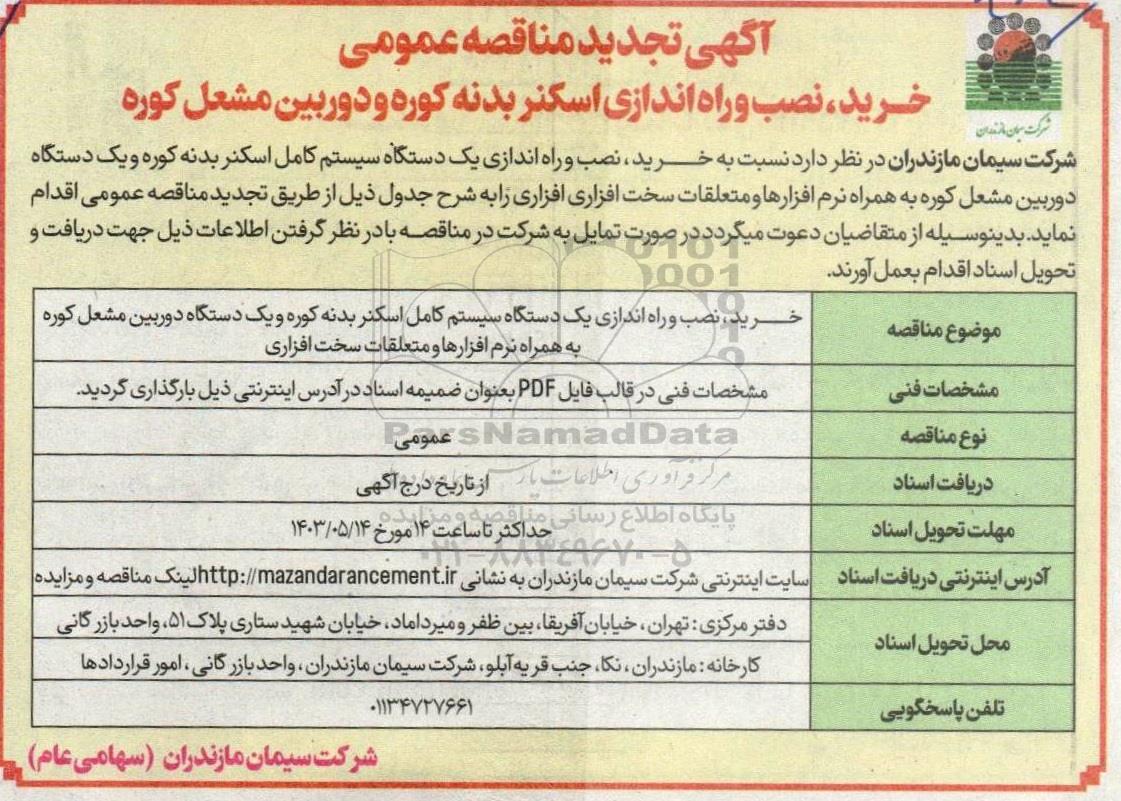 آگهی تجدید مناقصه عمومی
خرید، نصب و راه اندازی اسکنر بدنه کوره و دوربین مشعل کوره
شرکت سیمان مازندران
شرکت سیمان مازندران در نظر دارد نسبت به خرید، نصب و راه اندازی یک دستگاه سیستم کامل اسکنر بدنه کوره و یک دستگاه
دوربین مشعل کوره به همراه نرم افزارها و متعلقات سخت افزاری افزاری را به شرح جدول ذیل از طریق تجدید مناقصه عمومی اقدام
نماید. بدینوسیله از متقاضیان دعوت میگردد در صورت تمایل به شرکت در مناقصه با در نظر گرفتن اطلاعات ذیل جهت دریافت و
تحویل اسناد اقدام بعمل آورند.
موضوع مناقصه
خرید، نصب و راه اندازی یک دستگاه سیستم کامل اسکنر بدنه کوره و یک دستگاه دوربین مشعل کوره
به همراه نرم افزارها و متعلقات سخت افزاری
مشخصات فنی
مشخصات فنی در قالب فایل PDF بعنوان ضمیمه اسناد در آدرس اینترنتی ذیل بارگذاری گردید.
نوع مناقصه
عمومی
دریافت اسناد
از تاریخ درج آگهی
مهلت تحویل اسناد
حداکثر تا ساعت ۱۴ مورخ ۱۴۰۳/۰۵/۱۴
آدرس اینترنتی دریافت اسناد
سایت اینترنتی شرکت سیمان مازندران به نشانی http://mazandarancement.ir لینک مناقصه و مزایده
محل تحویل اسناد
دفتر مرکزی: تهران، خیابان آفریقا، بین ظفر و میرداماد، خیابان شهید ستاری پلاک ۵۱، واحد بازرگانی
کارخانه: مازندران، نکا، جنب قریه آبلو، شرکت سیمان مازندران، واحد بازرگانی، امور قراردادها
تلفن پاسخگویی
۰۱۱۳۴۷۲۷۶۶۱
شرکت سیمان مازندران (سهامی عام)
ParsNamadData
مرکز فرآوری اطلاعات پارس نماد داده ها
پایگاه اطلاع رسانی مناقصه و مزایده
۰۲۱-۸۸۳۴۹۶۷۰-۵